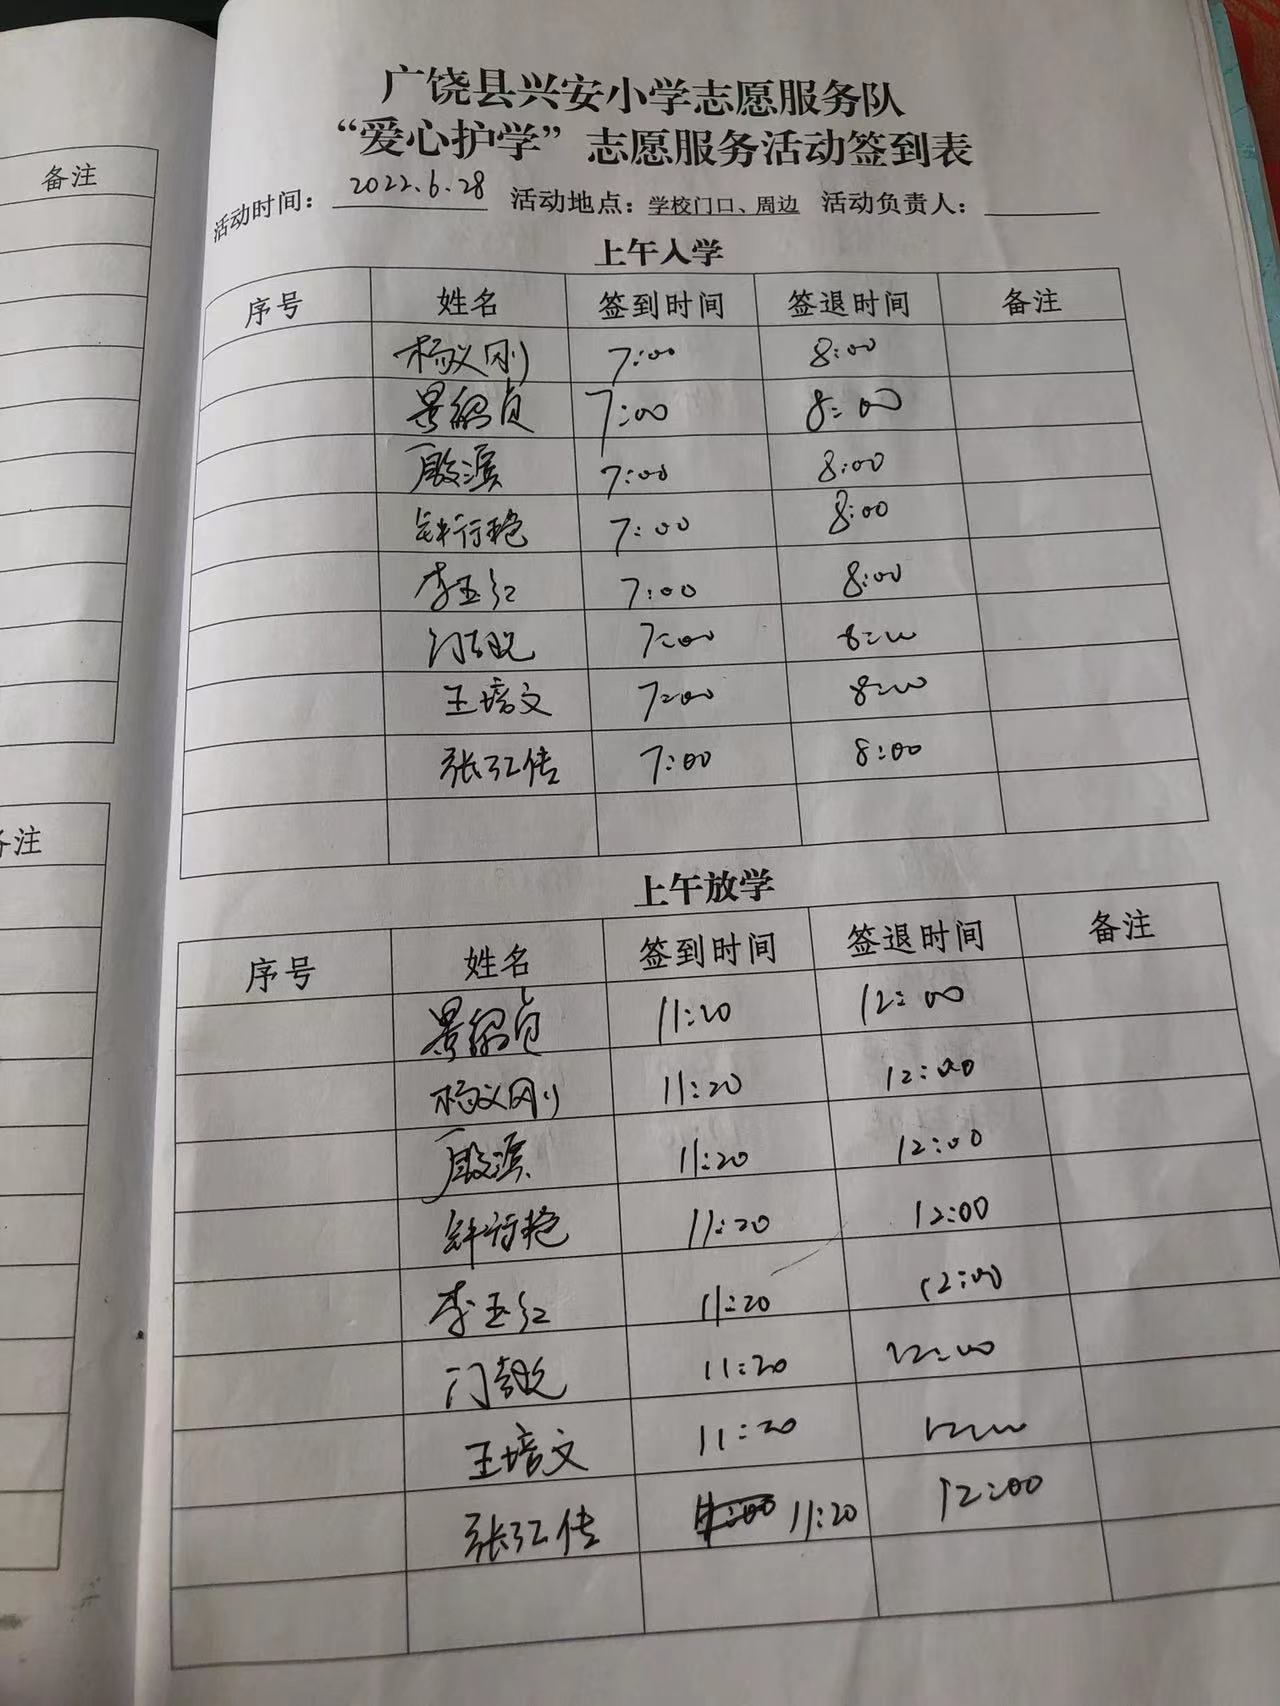 备注
备注
广饶县兴安小学志愿服务队
“爱心护学”志愿服务活动签到表
活动时间：2022.6.28 活动地点：学校门口、周边 活动负责人：
上午入学
序号 姓名 签到时间 签退时间 备注
杨义刚 7:00 8:00
7:00 8:00
殷滨 7:00 8:00
7:00 8:00
李玉红 7:00 8:00
7:00 8:00
王培文 7:00 8:00
张红伟 7:00 8:00
上午放学
序号 姓名 签到时间 签退时间 备注
11:20 12:00
杨义刚 11:20 12:00
殷滨 11:20 12:00
11:20 12:00
李玉红 11:20 12:00
11:20 12:00
王培文 11:20 12:00
张红伟 11:20 12:00